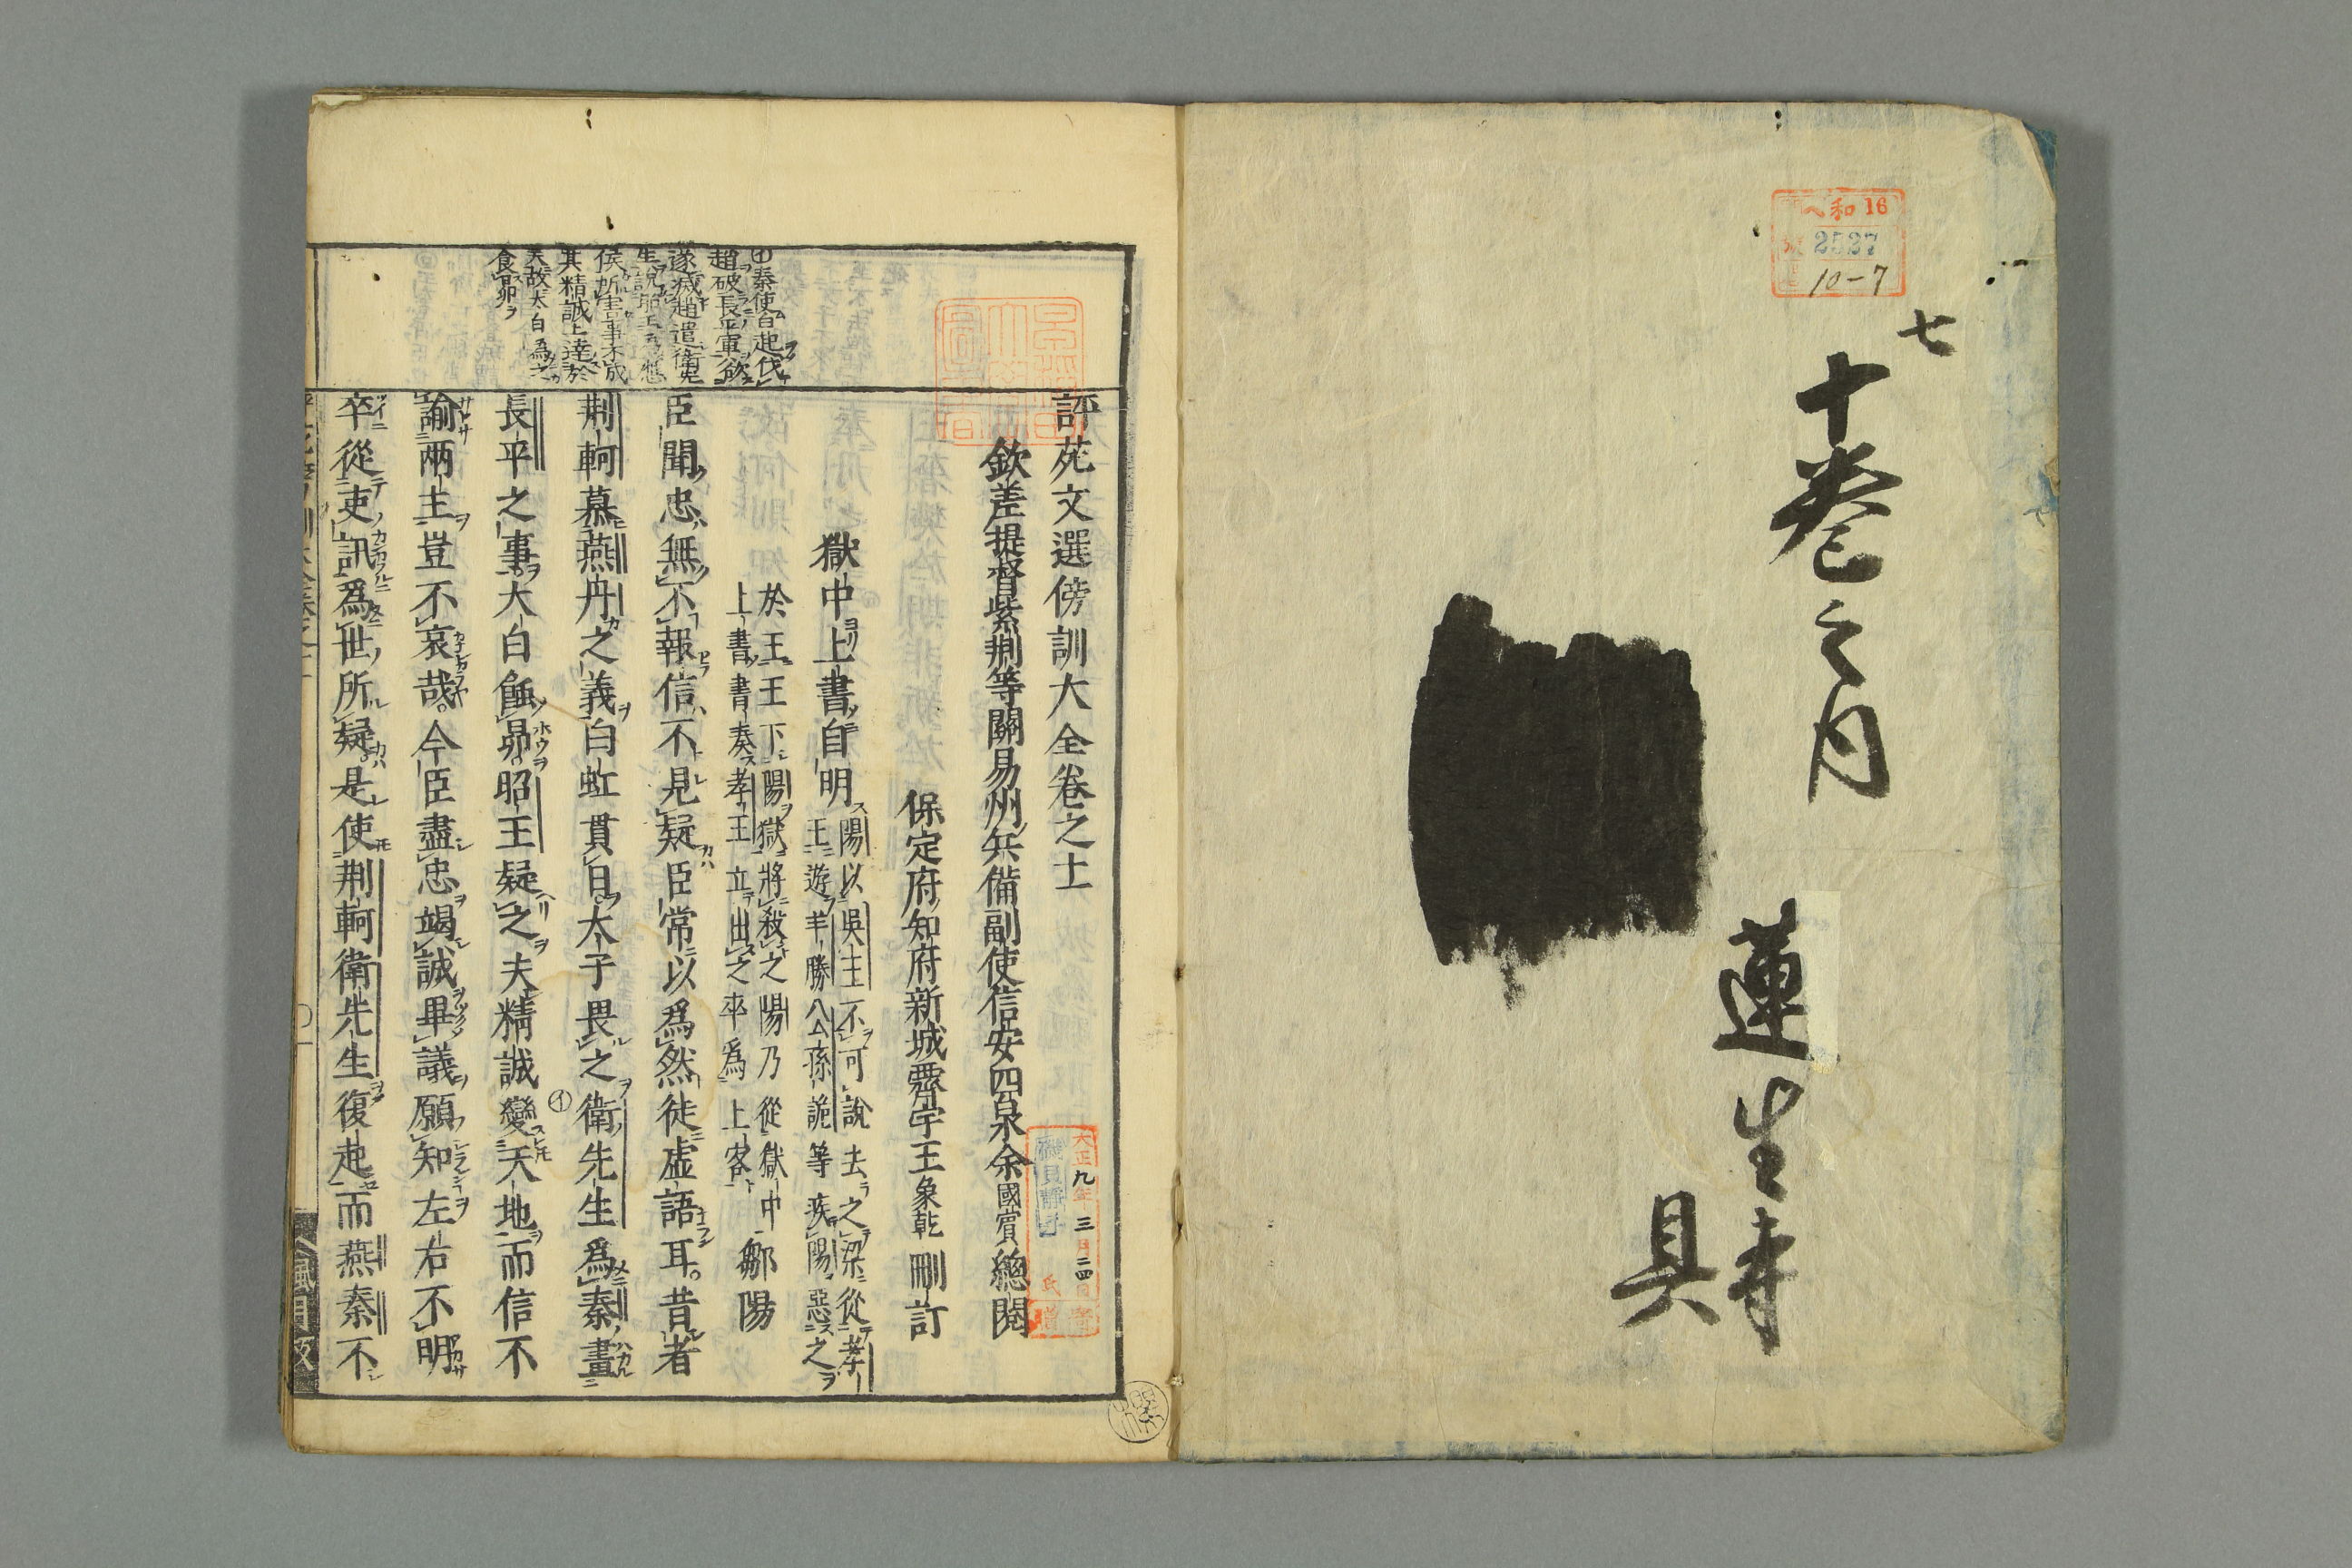 へ和16
2527
10-7
七
十巻之月
蓮生寺
具
評苑文選傍訓大全卷之十一
欽差提督紫荆等關易州兵備副使信安四泉余國賓總閱
保定府知府新城霽宇王象乾刪訂
獄中上書自明
陽以吳王不可說去之梁從孝
王遊羊勝公孫詭等疾陽惡之
於王王下陽獄將殺之陽乃從獄中
上書書奏孝王立出之卒爲上客
鄒陽
臣聞忠無不報信不見疑臣常以爲然徒虛語耳。昔者
荆軻慕燕丹之義白虹貫日。太子畏之衛先生爲秦畫
長平之事。太白蝕昴。昭王疑之夫精誠變天地而信不
諭兩主豈不哀哉。今臣盡忠竭誠畢議願知左右不明
卒從吏訊爲世所疑。是使荆軻衛先生復起而燕秦不
㋑秦使白起伐
趙破長平軍欲
遂滅趙遣衛先
生說昭王
侯所害事不成
其精誠上達於
天故太白為之
食昴
㋑
大正九年三月二四日
氏寄贈